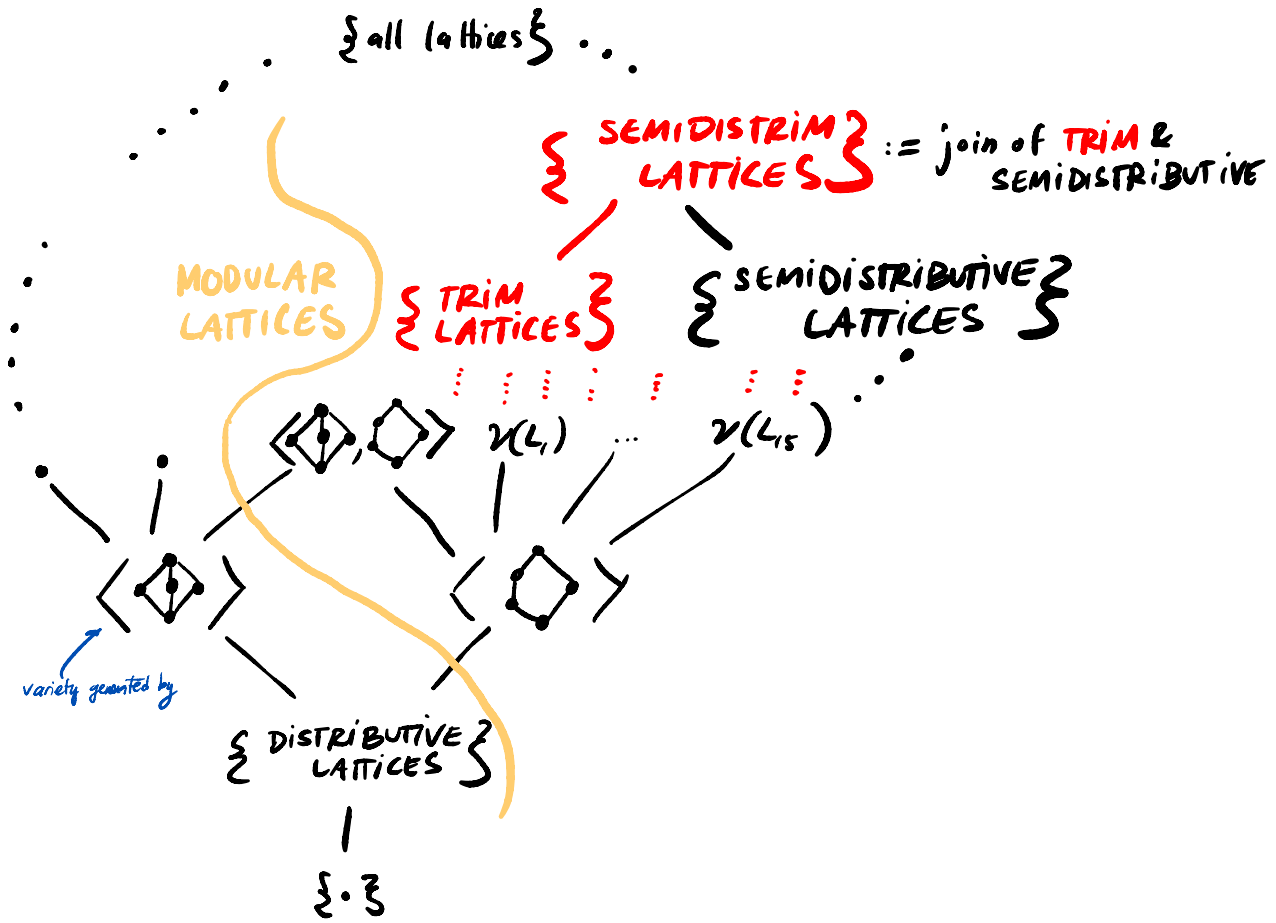 {all lattices}
{ SEMIDISTRIM
LATTICES } := join of TRIM &
SEMIDISTRIBUTIVE
MODULAR
LATTICES
{ TRIM
LATTICES }
{ SEMIDISTRIBUTIVE
LATTICES }
< , > V(L₁) ... V(L₁₅)
< > < >
variety generated by
{ DISTRIBUTIVE
LATTICES }
{•}